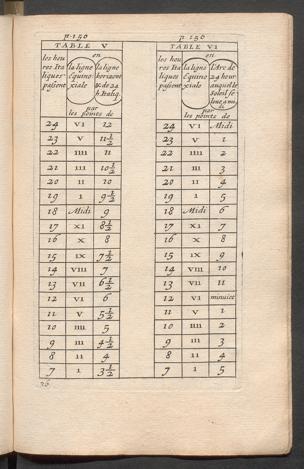 p. 150
TABLE V
les heu
res Ita
liques
passent
en
la ligne
Equino
xiale
la ligne
horizont
& de 24
h. Italiq.
par
les points de
24 VI 12
23 V 11 1/2
22 IIII 11
21 III 10 1/2
20 II 10
19 I 9 1/2
18 Midi 9
17 XI 8 1/2
16 X 8
15 IX 7 1/2
14 VIII 7
13 VII 6 1/2
12 VI 6
11 V 5 1/2
10 IIII 5
9 III 4 1/2
8 II 4
7 I 3 1/2
p. 150
TABLE VI
les heu
res Ita
liques
passent
en
la ligne
Equino
xiale
l'Arc de
24 heur
auquel le
soleil se
leue à mi
di
par
les points de
24 VI Midi
23 V 1
22 IIII 2
21 III 3
20 II 4
19 I 5
18 Midi 6
17 XI 7
16 X 8
15 IX 9
14 VIII 10
13 VII 11
12 VI minuict
11 V 1
10 IIII 2
9 III 3
8 II 4
7 I 5